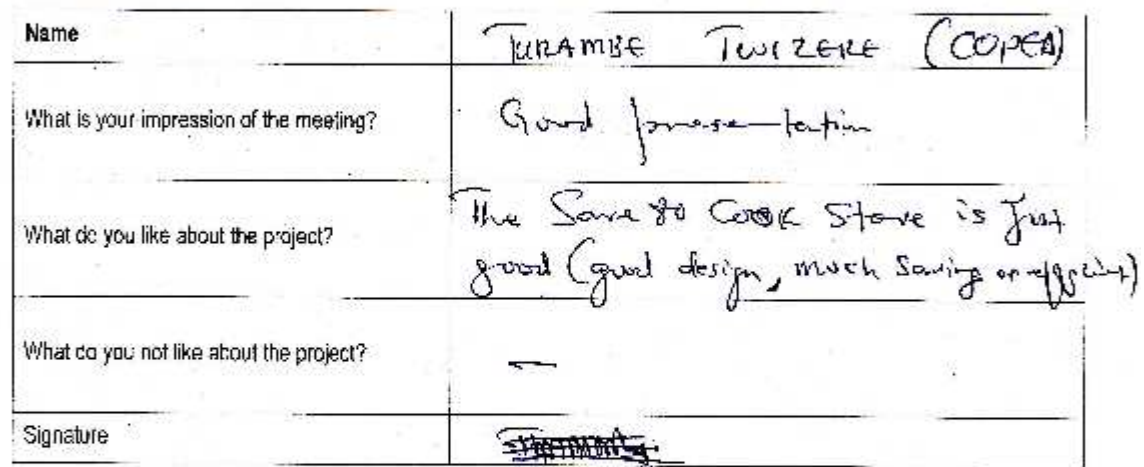 Name TURAMBE TWIZERE (COPEA)
What is your impression of the meeting? Good presentation
What do you like about the project? The Save 80 Cook Stove is Just
good (good design, much Saving or efficient)
What do you not like about the project? —
Signature